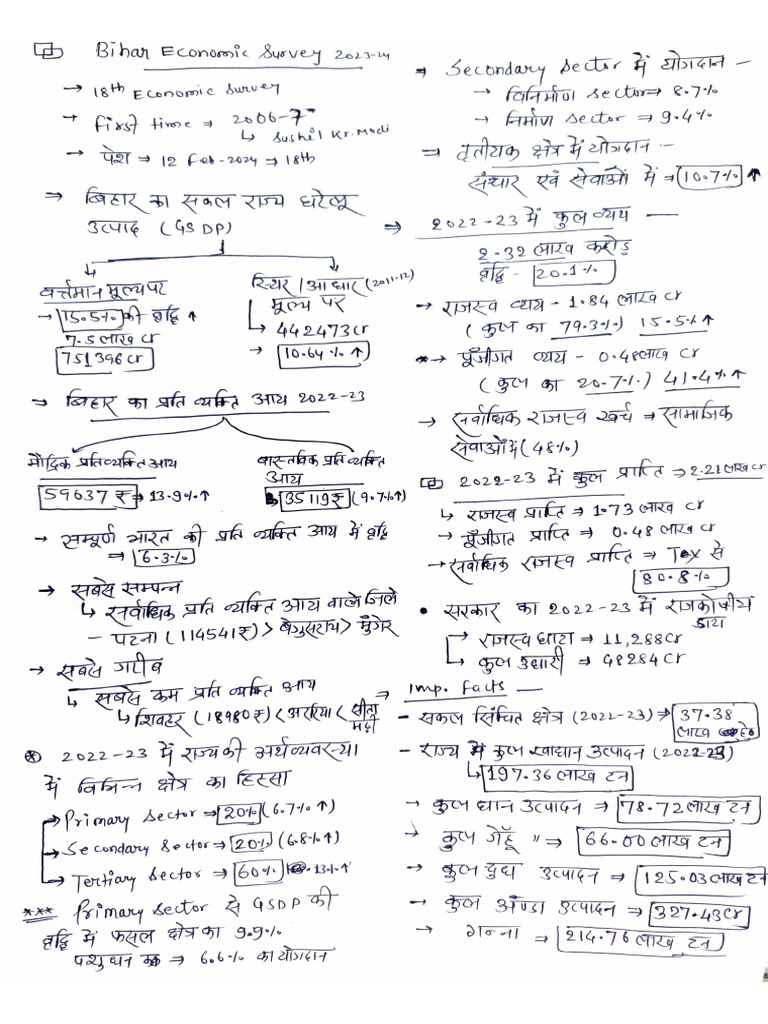 Bihar Economic Survey 2023-24
→ 18th Economic Survey
→ First time ⇒ 2006-7
↳ Sushil Kr. Modi
→ पेश ⇒ 12 Feb-2024 ⇒ 18th
⇒ बिहार का सकल राज्य घरेलू
उत्पाद (GSDP)
वर्त्तमान मूल्य पर
→ 15.5% की वृद्धि ↑
7.5 लाख cr
751396cr
स्थिर / आधार (2011-12)
मूल्य पर
↳ 442473cr
→ 10.64% ↑
→ बिहार का प्रति व्यक्ति आय 2022-23
मौद्रिक प्रतिव्यक्ति आय
59637 ₹ → 13.9% ↑
वास्तविक प्रति व्यक्ति
आय
↳ 35119 ₹ (9.7% ↑)
→ सम्पूर्ण भारत की प्रति व्यक्ति आय में वृद्धि
⇒ 6.3%
→ सबसे सम्पन्न
↳ सर्वाधिक प्रति व्यक्ति आय वाले जिले
- पटना (114541 ₹) > बेगुसराय > मुंगेर
→ सबसे गरीब
↳ सबसे कम प्रति व्यक्ति आय
↳ शिवहर (18980 ₹) < अररिया < सीतामढ़ी
* 2022-23 में राज्य की अर्थव्यवस्था
में विभिन्न क्षेत्र का हिस्सा
→ Primary Sector → 20% (6.7% ↑)
→ Secondary Sector → 20% (6.8% ↑)
→ Tertiary Sector ⇒ 60% 13% ↑
*** Primary sector से GSDP की
वृद्धि में फसल क्षेत्र का 9.9%
पशुधन ⇒ 6.6% का योगदान
→ Secondary Sector में योगदान -
→ विनिर्माण Sector ⇒ 8.7%
→ निर्माण Sector ⇒ 9.4%
⇒ तृतीयक क्षेत्र में योगदान :-
संचार एवं सेवाओं में ⇒ 10.7% ↑
⇒ 2022-23 में कुल व्यय —
2.32 लाख करोड़
वृद्धि - 20.1%
→ राजस्व व्यय - 1.84 लाख cr
(कुल का 79.3%) 15.5% ↑
*→ पूँजीगत व्यय - 0.48 लाख cr
(कुल का 20.7%) 41.4% ↑
→ सर्वाधिक राजस्व खर्च ⇒ सामाजिक
सेवाओं में (48%)
2022-23 में कुल प्राप्ति ⇒ 2.21 लाख cr
↳ राजस्व प्राप्ति ⇒ 1.73 लाख cr
→ पूँजीगत प्राप्ति ⇒ 0.48 लाख cr
→ सर्वाधिक राजस्व प्राप्ति ⇒ Tax से
80.8%
• सरकार का 2022-23 में राजकोषीय
डाटा
→ राजस्व घाटा ⇒ 11,288cr
↳ कुल उधारी ⇒ 48284 cr
⇒ Imp. Facts —
- सकल सिंचित क्षेत्र (2022-23) ⇒ 37.38
लाख हे०
- राज्य में कुल खाद्यान उत्पादन (2022-23)
↳ 197.36 लाख टन
→ कुल धान उत्पादन ⇒ 78.72 लाख टन
→ कुल गेहूँ " ⇒ 66.00 लाख टन
→ कुल दुध उत्पादन ⇒ 125.03 लाख टन
→ कुल अण्डा उत्पादन ⇒ 327.43 cr
→ गन्ना ⇒ 214.76 लाख टन